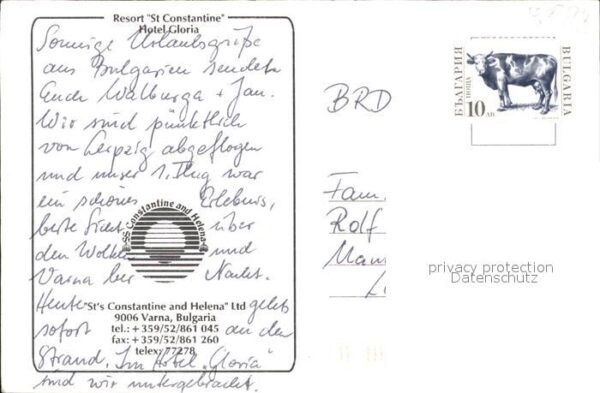 Resort "St Constantine"
Hotel Gloria
Sonnige Urlaubsgrüße
aus Bulgarien senden
Euch Walburga + Jan.
Wir sind pünktlich
von Leipzig abgeflogen
und unser 1. Flug war
ein schönes Erlebnis,
beste Sicht über
den Wolken und
Varna bei Nacht.
Heute geht's
sofort an den
Strand. Im Hotel "Gloria"
sind wir untergebracht.
SS Constantine and Helena
"St's Constantine and Helena" Ltd
9006 Varna, Bulgaria
tel.: +359/52/861 045
fax: +359/52/861 260
telex: 77278
БЪЛГАРИЯ
ПОЩА
10 ЛВ
BULGARIA
BRD
Fam.
Rolf
privacy protection
Datenschutz